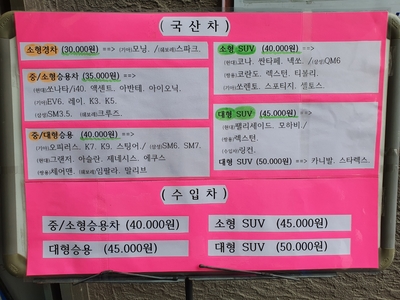 ( 국 산 차 )
소형경차 (30,000원) ==>
(기아)모닝. /(쉐보레)스파크.
중/소형승용차 (35,000원) ==>
(현대)쏘나타/i40. 액센트. 아반테. 아이오닉.
(기아)EV6. 레이. K3. K5.
(삼성)SM3.5. (쉐보레)크루즈.
중/대형승용 (40,000원) ==>
(기아)오피러스. K7. K9. 스팅어./ (삼성)SM6. SM7.
(현대)그랜저. 아슬란. 제네시스. 에쿠스
(쌍용)체어맨. (쉐보레)임팔라. 말리브
소형 SUV (40,000원) ==>
(현대)코나. 싼타페. 넥쏘. /(삼성)QM6
(쌍용)코란도. 렉스턴. 티볼리.
(기아)쏘렌토. 스포티지. 셀토스.
대형 SUV (45,000원) ==>
(현대)팰리세이드. 모하비./
(쌍용)렉스턴.
(수입차)링컨.
대형 SUV (50,000원) ==> 카니발. 스타렉스.
( 수 입 차 )
중/소형승용차 (40.000원)
대형승용 (45.000원)
소형 SUV (45.000원)
대형 SUV (50.000원)